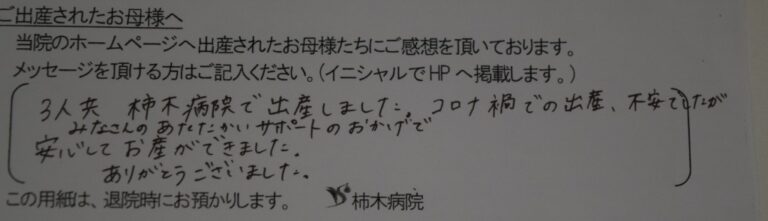 ご出産されたお母様へ
当院のホームページへ出産されたお母様たちにご感想を頂いております。
メッセージを頂ける方はご記入ください。（イニシャルでHPへ掲載します。）
3人共 柿木病院で出産しました。コロナ禍での出産、不安でしたが
みなさんのあたたかいサポートのおかげで
安心してお産ができました。
ありがとうございました。
この用紙は、退院時にお預かりします。 柿木病院